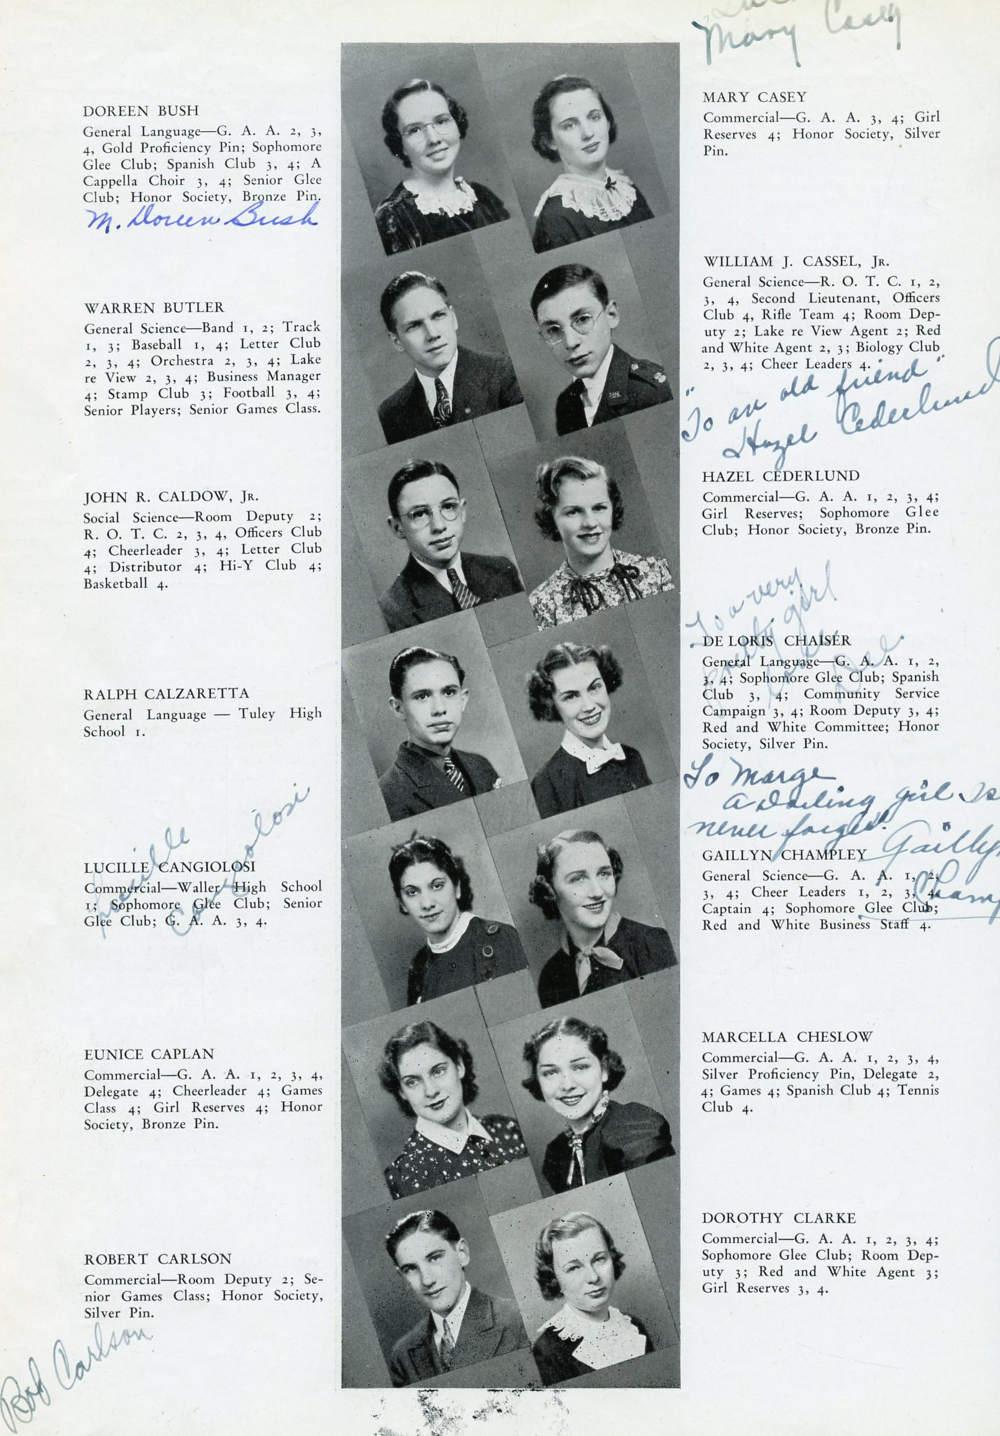 DOREEN BUSH
General Language—G. A. A. 2, 3,
4, Gold Proficiency Pin; Sophomore
Glee Club; Spanish Club 3, 4; A
Cappella Choir 3, 4; Senior Glee
Club; Honor Society, Bronze Pin.
M. Doreen Bush
WARREN BUTLER
General Science—Band 1, 2; Track
1, 3; Baseball 1, 4; Letter Club
2, 3, 4; Orchestra 2, 3, 4; Lake
re View 2, 3, 4; Business Manager
4; Stamp Club 3; Football 3, 4;
Senior Players; Senior Games Class.
JOHN R. CALDOW, JR.
Social Science—Room Deputy 2;
R. O. T. C. 2, 3, 4, Officers Club
4; Cheerleader 3, 4; Letter Club
4; Distributor 4; Hi-Y Club 4;
Basketball 4.
RALPH CALZARETTA
General Language — Tuley High
School 1.
Lucille
Cangiolosi
LUCILLE CANGIOLOSI
Commercial—Waller High School
1; Sophomore Glee Club; Senior
Glee Club; G. A. A. 3, 4.
EUNICE CAPLAN
Commercial—G. A. A. 1, 2, 3, 4,
Delegate 4; Cheerleader 4; Games
Class 4; Girl Reserves 4; Honor
Society, Bronze Pin.
ROBERT CARLSON
Commercial—Room Deputy 2; Se-
nior Games Class; Honor Society,
Silver Pin.
Bob Carlson
Mary Casey
MARY CASEY
Commercial—G. A. A. 3, 4; Girl
Reserves 4; Honor Society, Silver
Pin.
WILLIAM J. CASSEL, JR.
General Science—R. O. T. C. 1, 2,
3, 4, Second Lieutenant, Officers
Club 4, Rifle Team 4; Room Dep-
uty 2; Lake re View Agent 2; Red
and White Agent 2, 3; Biology Club
2, 3, 4; Cheer Leaders 4.
"To an old friend"
Hazel Cederlund
HAZEL CEDERLUND
Commercial—G. A. A. 1, 2, 3, 4;
Girl Reserves; Sophomore Glee
Club; Honor Society, Bronze Pin.
To a very
pretty girl
Dee
DE LORIS CHAISER
General Language—G. A. A. 1, 2,
3, 4; Sophomore Glee Club; Spanish
Club 3, 4; Community Service
Campaign 3, 4; Room Deputy 3, 4;
Red and White Committee; Honor
Society, Silver Pin.
To Marge
A darling girl is
never forgot.
Gaillyn
Champ
GAILLYN CHAMPLEY
General Science—G. A. A. 1, 2,
3, 4; Cheer Leaders 1, 2, 3, 4,
Captain 4; Sophomore Glee Club;
Red and White Business Staff 4.
MARCELLA CHESLOW
Commercial—G. A. A. 1, 2, 3, 4,
Silver Proficiency Pin, Delegate 2,
4; Games 4; Spanish Club 4; Tennis
Club 4.
DOROTHY CLARKE
Commercial—G. A. A. 1, 2, 3, 4;
Sophomore Glee Club; Room Dep-
uty 3; Red and White Agent 3;
Girl Reserves 3, 4.